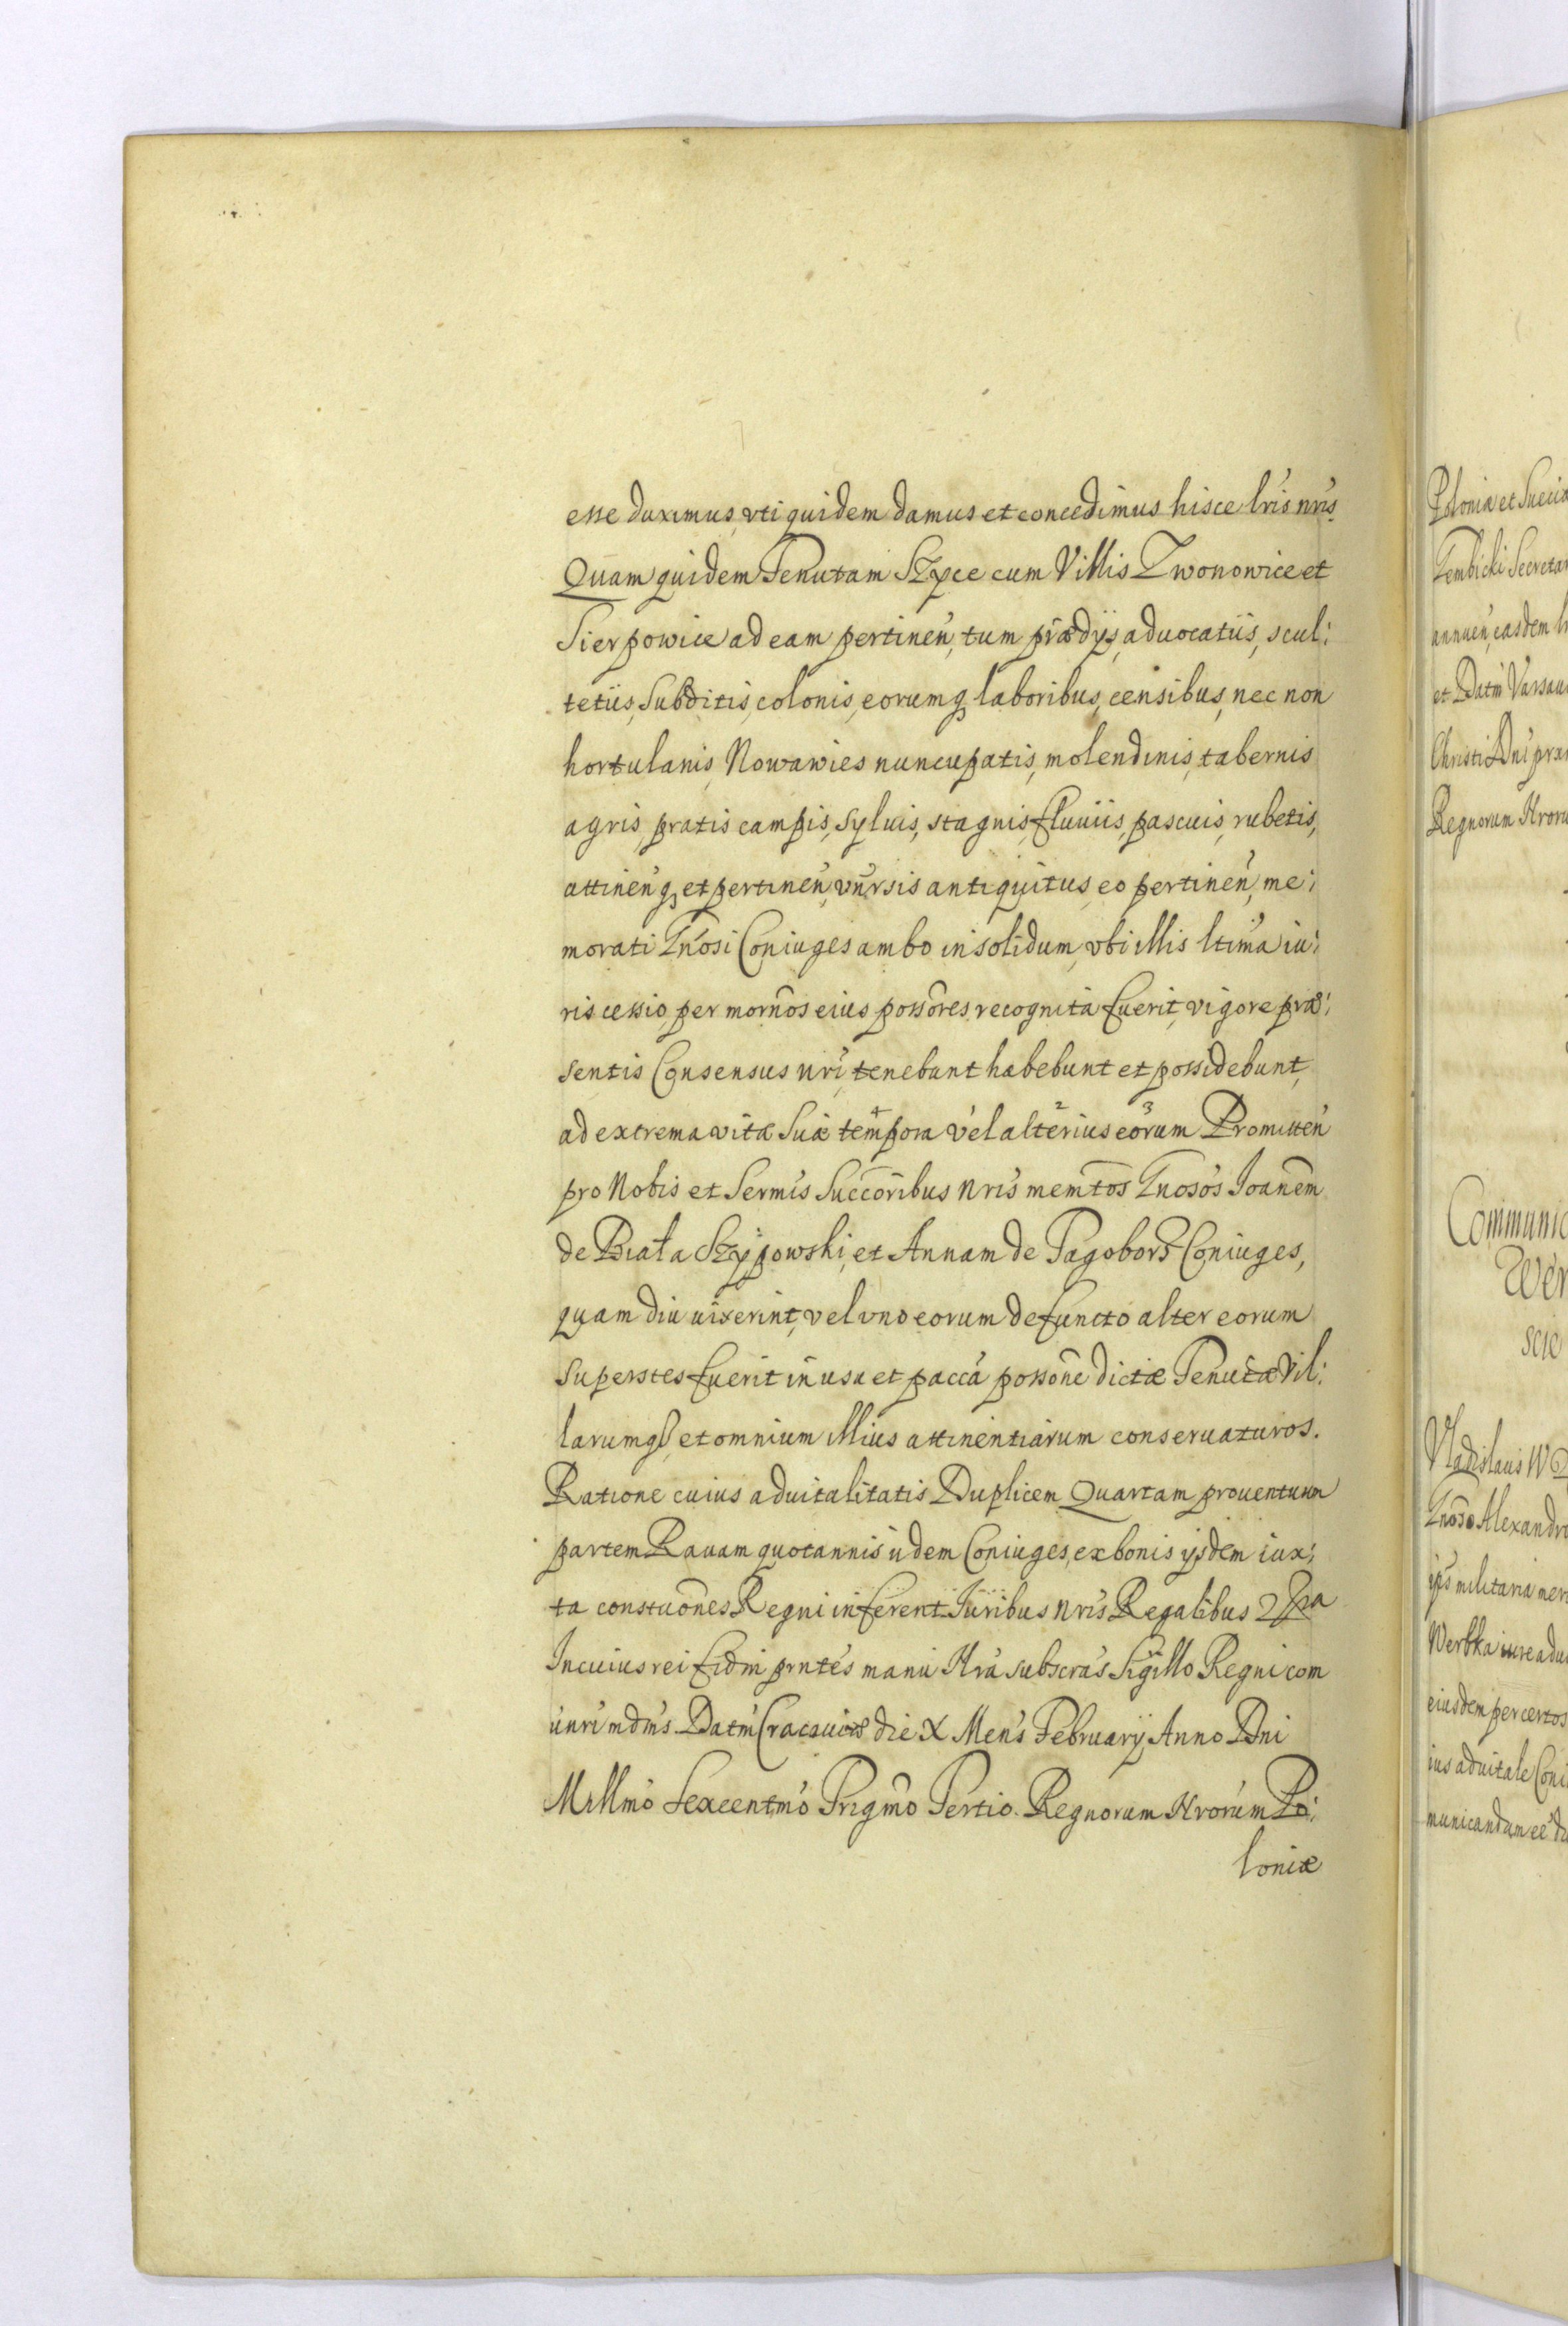 esse duximus, vti quidem damus et concedimus hisce lris nris.
Quam quidem Tenutam Szyce cum Villis Zwonowice et
Sierpowice ad eam pertinen, tum prædys, aduocatiis, scul:
tetiis, Subditis, colonis, eorumq laboribus, censibus, nec non
hortulanis, Nowawies nuncupatis, molendinis, tabernis
agris, pratis campis, syluis, stagnis, fluuiis, pascuis, rubetis,
attinenq et pertinen, vnrsis antiquitus eo pertinen, me:
morati Gnosi Coniuges ambo insolidum, vbi illis ltima iu:
ris cessio per mornos eius possores recognita fuerit, vigore præ:
sentis Consensus nri, tenebunt habebunt et possidebunt,
ad extrema vitæ suæ tempora vel alterius eorum Promitten
pro Nobis et Sermis Succoribus nris memtos Gnosos Joanem
de Biała Szypowski, et Annam de Coniuges,
quam diu uixerint, vel vno eorum defuncto alter eorum
superstes fuerit in usu et pacca possone dictæ Tenutæ Vil:
larumq et omnium illius attinentiarum conseruaturos.
Ratione cuius aduitalitatis Duplicem Quartam prouentuum
partem Rauam quotannis iidem Coniuges, ex bonis ysdem iux:
ta constuones Regni inferent. Iuribus nris Regalibus
In cuius rei fidm prntes manu Nra subscras Sigillo Regni com
unri mdms. Datm Cracouiæ die X Mens February, Anno Dni
Millmo Sexcentmo Trigmo Tertio. Regnorum Nrorum Po:
loniæ
Poloniæ et
Secretar
annuen, easdem
et Datm Varsau
Christi Dni
Regnorum Nroru
Communic
Wladislaus IV
Gnoso Alexandr
militaria mer
Werbka iure adu
eiusdem per certos
ius aduitale Coni
municandum